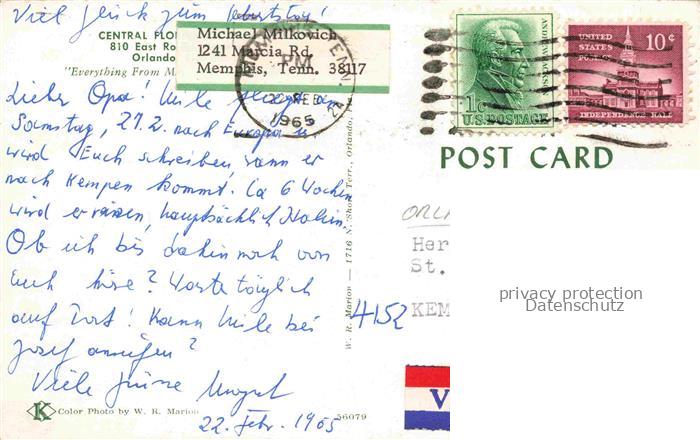 Viel Glück zum Geburtstag!
CENTRAL FLO
810 East Ro
Orlando
"Everything From M
Michael Milkovich
1241 Marcia Rd.
Memphis, Tenn. 38117
TENN.
PM
22 FEB
1965
1c
U.S. POSTAGE
UNITED STATES
10¢
INDEPENDENCE HALL
POST CARD
Lieber Opa! Mile fliegt am
Samstag, 27.2. nach Europa u.
wird Euch schreiben wann er
nach Kempen kommt. Ca 6 Wochen
wird er reisen, hauptsächlich Italien.
Ob ich bis dahin noch von
Euch höre? Warte täglich
auf Post! Kann Mile bei
Josef anrufen?
Viele Grüsse
22. Febr. 1965
W. R. Marion — 1716 N. Shore Terr., Orlando,
ORL
Her
St.
4152 KEM
privacy protection
Datenschutz
V
K Color Photo by W. R. Marion
56079